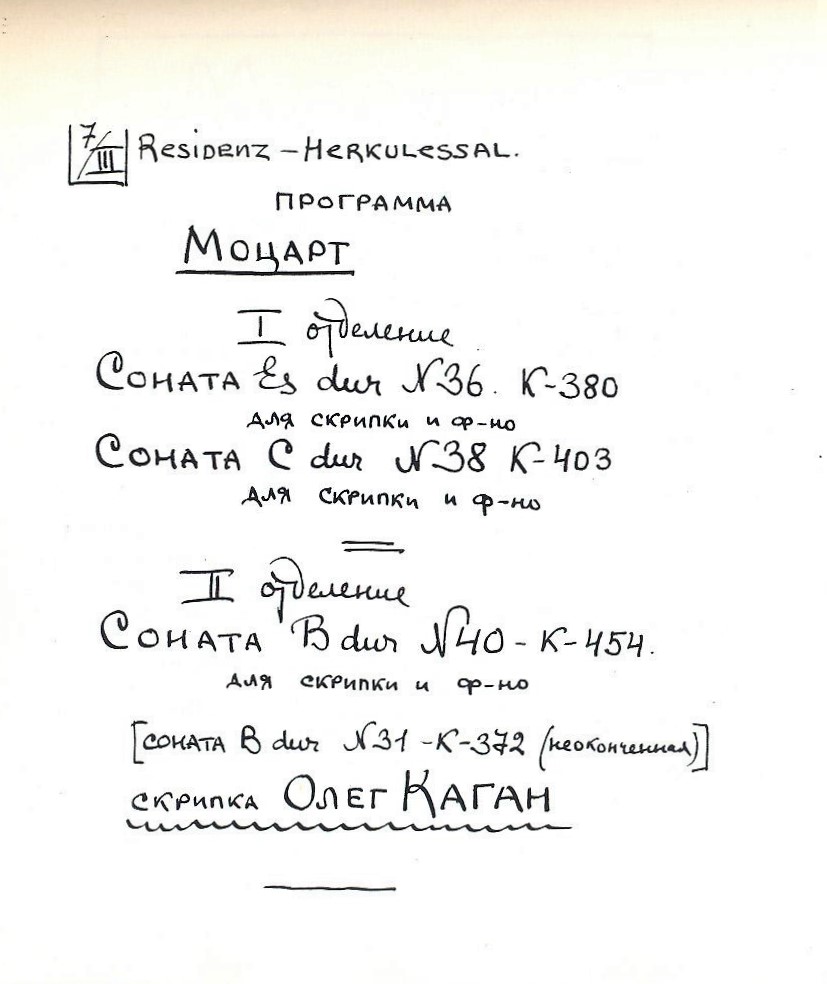 7/III Residenz – Herkulessal.
ПРОГРАММА
Моцарт
I отделение
Соната Es dur N36. K-380
для скрипки и ф-но
Соната C dur N38 K-403
для скрипки и ф-но
II отделение
Соната B dur N40 - K-454.
для скрипки и ф-но
[соната B dur N31 - K-372 (неоконченная)]
скрипка Олег Каган